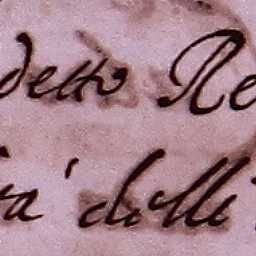 detto Re
ta' delli